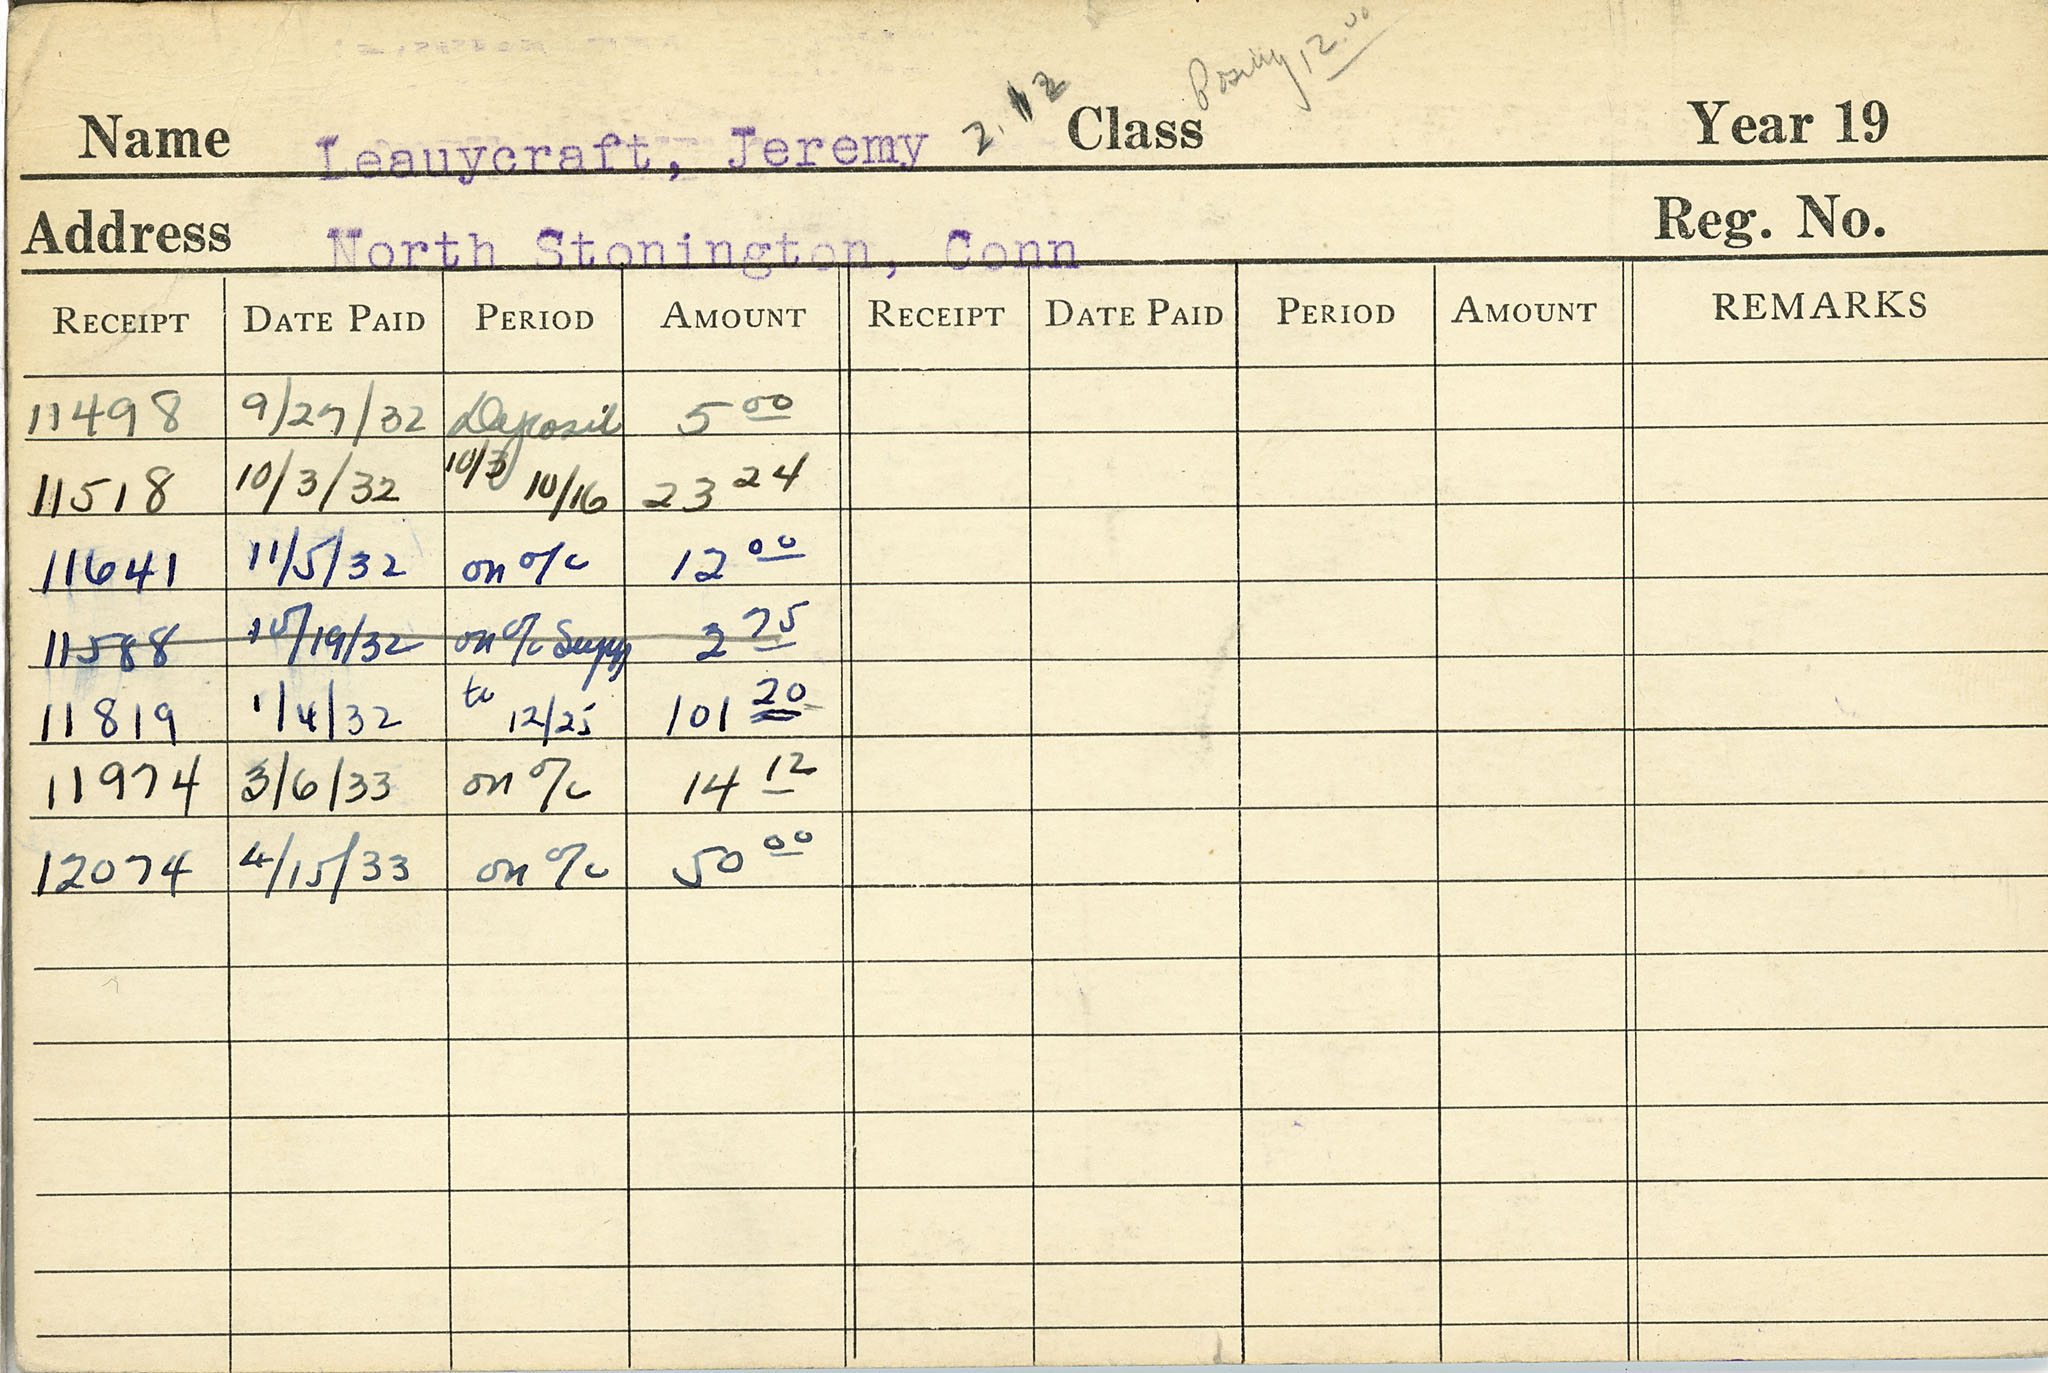 Posilly 12.00
Name Leauycraft, Jeremy 2.12 Class Year 19
Address North Stonington, Conn Reg. No.
RECEIPT DATE PAID PERIOD AMOUNT RECEIPT DATE PAID PERIOD AMOUNT REMARKS
11498 9/27/32 Deposit 5 00
11518 10/3/32 10/3 10/16 23 24
11641 11/5/32 on a/c 12 00
11588 10/19/32 on a/c Supp 2 75
11819 1/4/32 to 12/25 101 20
11974 3/6/33 on a/c 14 12
12074 4/15/33 on a/c 50 00